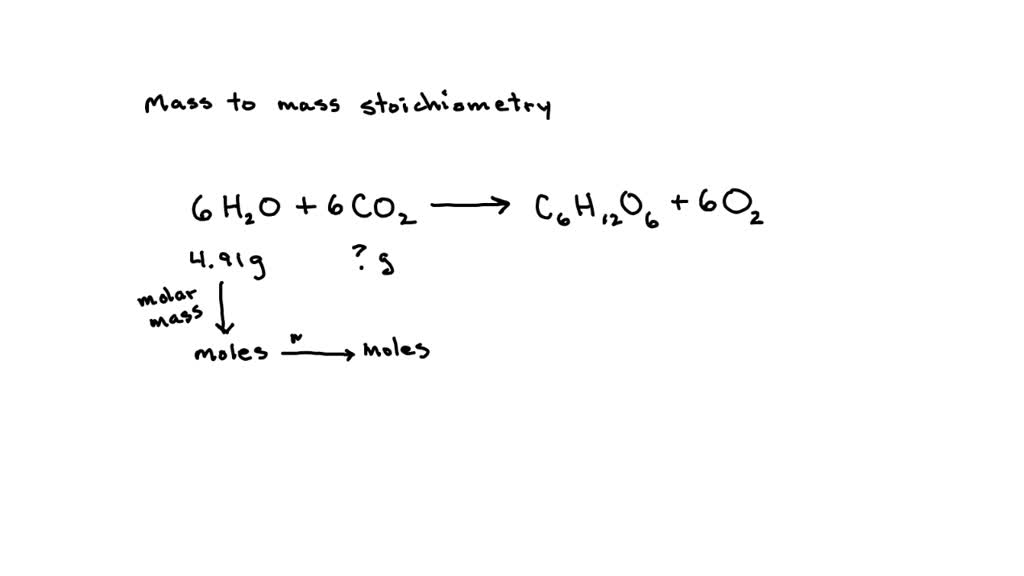 Mass to mass stoichiometry
6 H₂O + 6 CO₂ ⟶ C₆H₁₂O₆ + 6 O₂
4.91g ? g
molar
mass
moles ⟶ moles